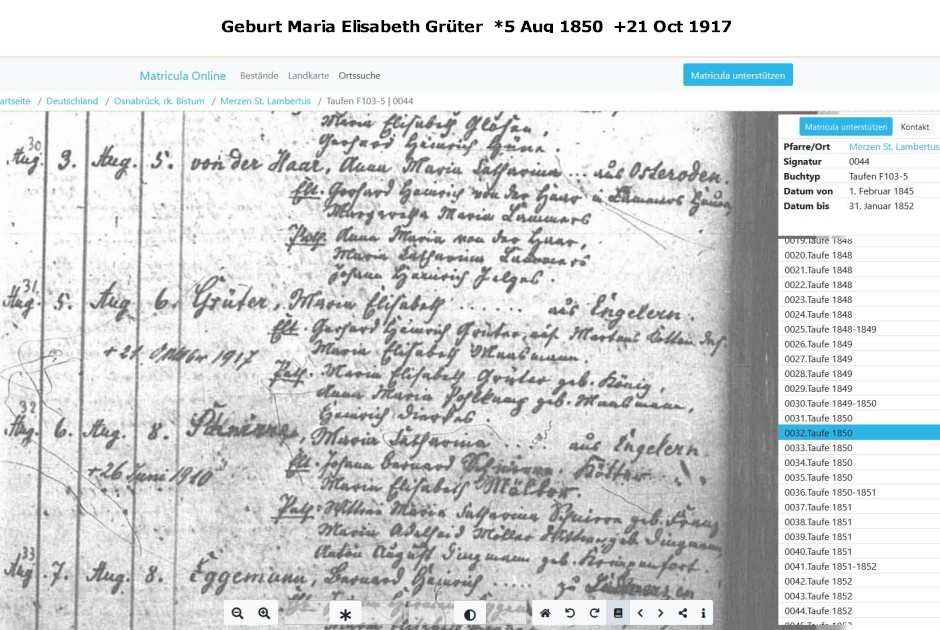 Geburt Maria Elisabeth Grüter *5 Aug 1850 +21 Oct 1917
Matricula Online Bestände Landkarte Ortssuche Matricula unterstützen
artseite / Deutschland / Osnabrück, rk. Bistum / Merzen St. Lambertus / Taufen F103-5 | 0044
Maria Elisabeth
Gerhard Heinrich
30
Aug. 3. Aug. 5. von der Haar, Anna Maria Catharina ... aus Osteroden.
Elt. Gerhard Heinrich von der Haar in Lammers
Margaretha Maria Lammers
Path. Anna Maria von der Haar,
Maria Catharina Lammers
Johann Heinrich
31.
Aug. 5. Aug 6. Grüter, Maria Elisabeth ...... aus Engelern.
Elt. Gerhard Heinrich Grüter, auf
+ 21. October 1917 Maria Elisabeth Maasmann.
Path. Maria Elisabeth Grüter geb. König,
Anna Maria geb. Maasmann,
Heinrich
32
Aug. 6. Aug. 8. Maria Catharina .... aus Engelern
Elt. Johann Bernard
+26 Juni 1910 Maria Elisabeth
Path. Maria Catharina geb.
Maria Adelheid Möller
Anton August geb.
33
Aug. 7. Aug. 8. Eggemann, Bernard Heinrich .... zu
Matricula unterstützen Kontakt
Pfarre/Ort Merzen St. Lambertus
Signatur 0044
Buchtyp Taufen F103-5
Datum von 1. Februar 1845
Datum bis 31. Januar 1852
0019.Taufe 1848
0020.Taufe 1848
0021.Taufe 1848
0022.Taufe 1848
0023.Taufe 1848
0024.Taufe 1848
0025.Taufe 1848-1849
0026.Taufe 1849
0027.Taufe 1849
0028.Taufe 1849
0029.Taufe 1849
0030.Taufe 1849-1850
0031.Taufe 1850
0032.Taufe 1850
0033.Taufe 1850
0034.Taufe 1850
0035.Taufe 1850
0036.Taufe 1850-1851
0037.Taufe 1851
0038.Taufe 1851
0039.Taufe 1851
0040.Taufe 1851
0041.Taufe 1851-1852
0042.Taufe 1852
0043.Taufe 1852
0044.Taufe 1852
0045.Taufe 1852